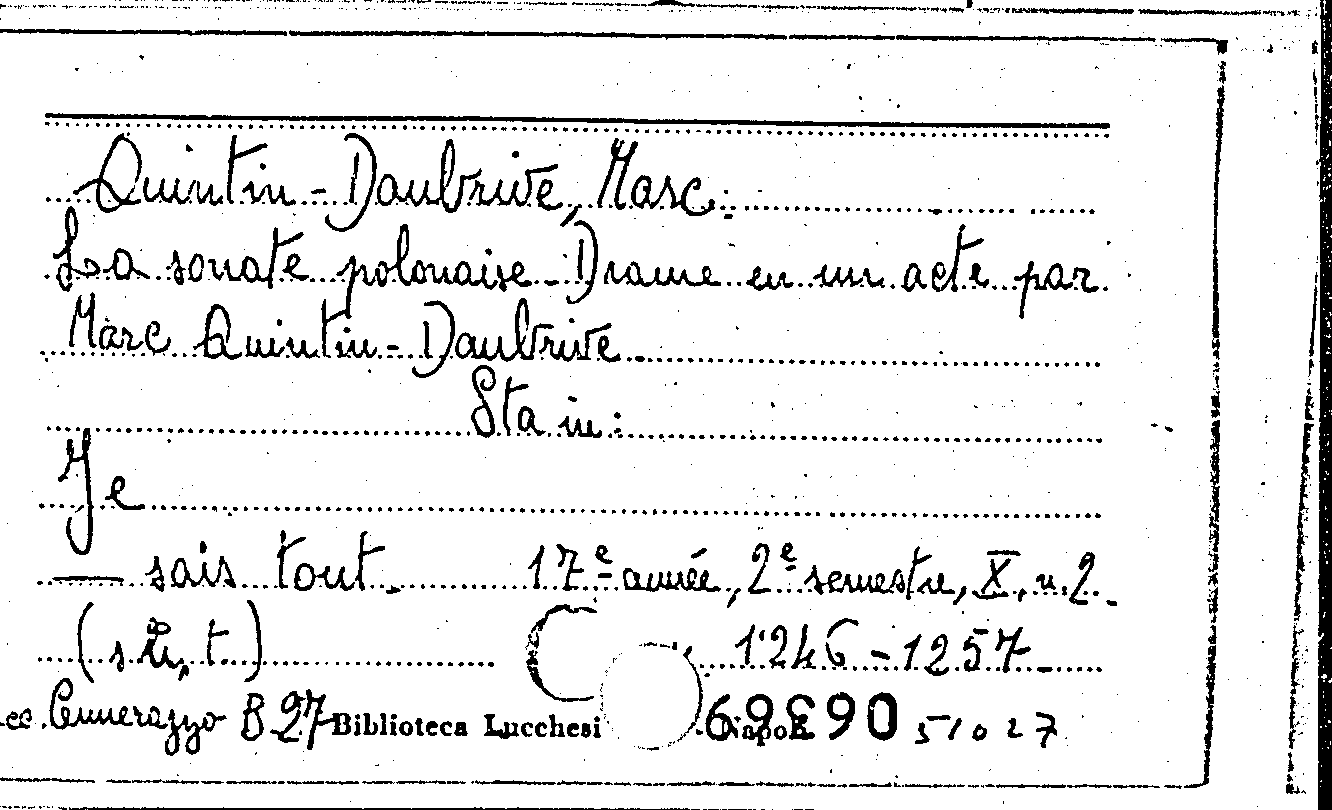 Quintin-Daubrive, Marc.
La sonate polonaise. Drame en un acte par
Marc Quintin-Daubrive.
Sta in:
Je
— sais tout. 17e année, 2e semestre, X, n. 2.
1246-1257.
B 27 Biblioteca Lucchesi Napoli 51027